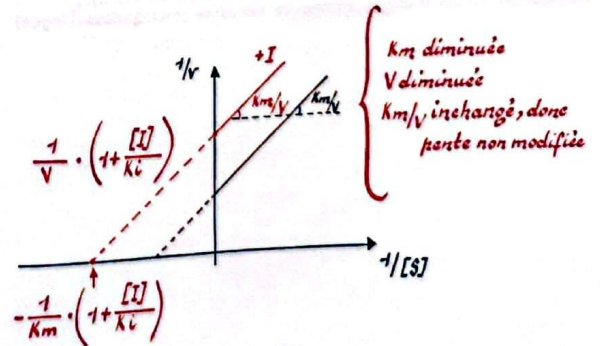 1/v
+I
Km/V
Km/V
1/V · (1+ [I]/Ki)
Km diminuée
V diminuée
Km/V inchangé, donc
pente non modifiée
1/[S]
-1/Km · (1+ [I]/Ki)